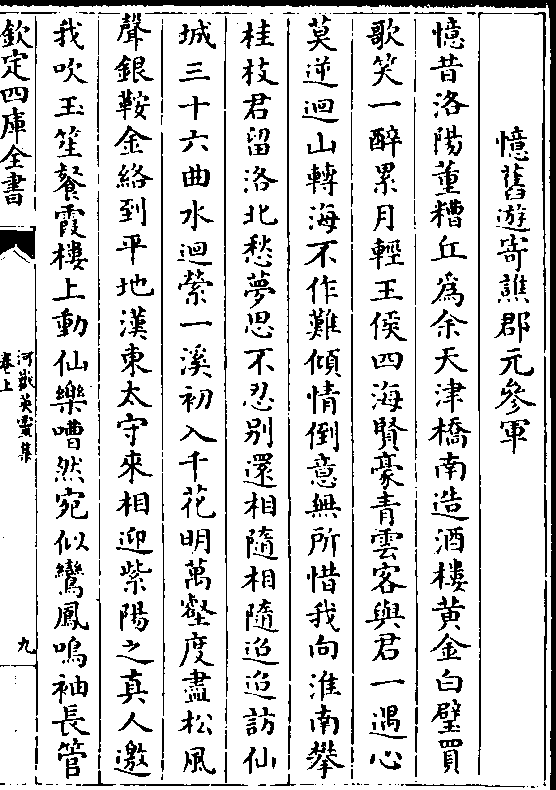 憶舊遊寄譙郡元參軍
憶昔洛陽董糟丘為余天津橋南造酒樓黄金白璧買
歌笑一醉累月輕王侯四海賢豪青雲客與君一遇心
莫逆迴山轉海不作難傾情倒意無所惜我向淮南攀
桂枝君留洛北愁夢思不忍别還相隨相隨迢迢訪仙
城三十六曲水迴縈一溪初入千花明萬壑度盡松風
聲銀鞍金絡到平地漢東太守來相迎紫陽之真人邀
我吹玉笙餐霞樓上動仙樂嘈然宛似鸞鳳鳴袖長管
欽定四庫全書
河嶽英靈集
卷上
九